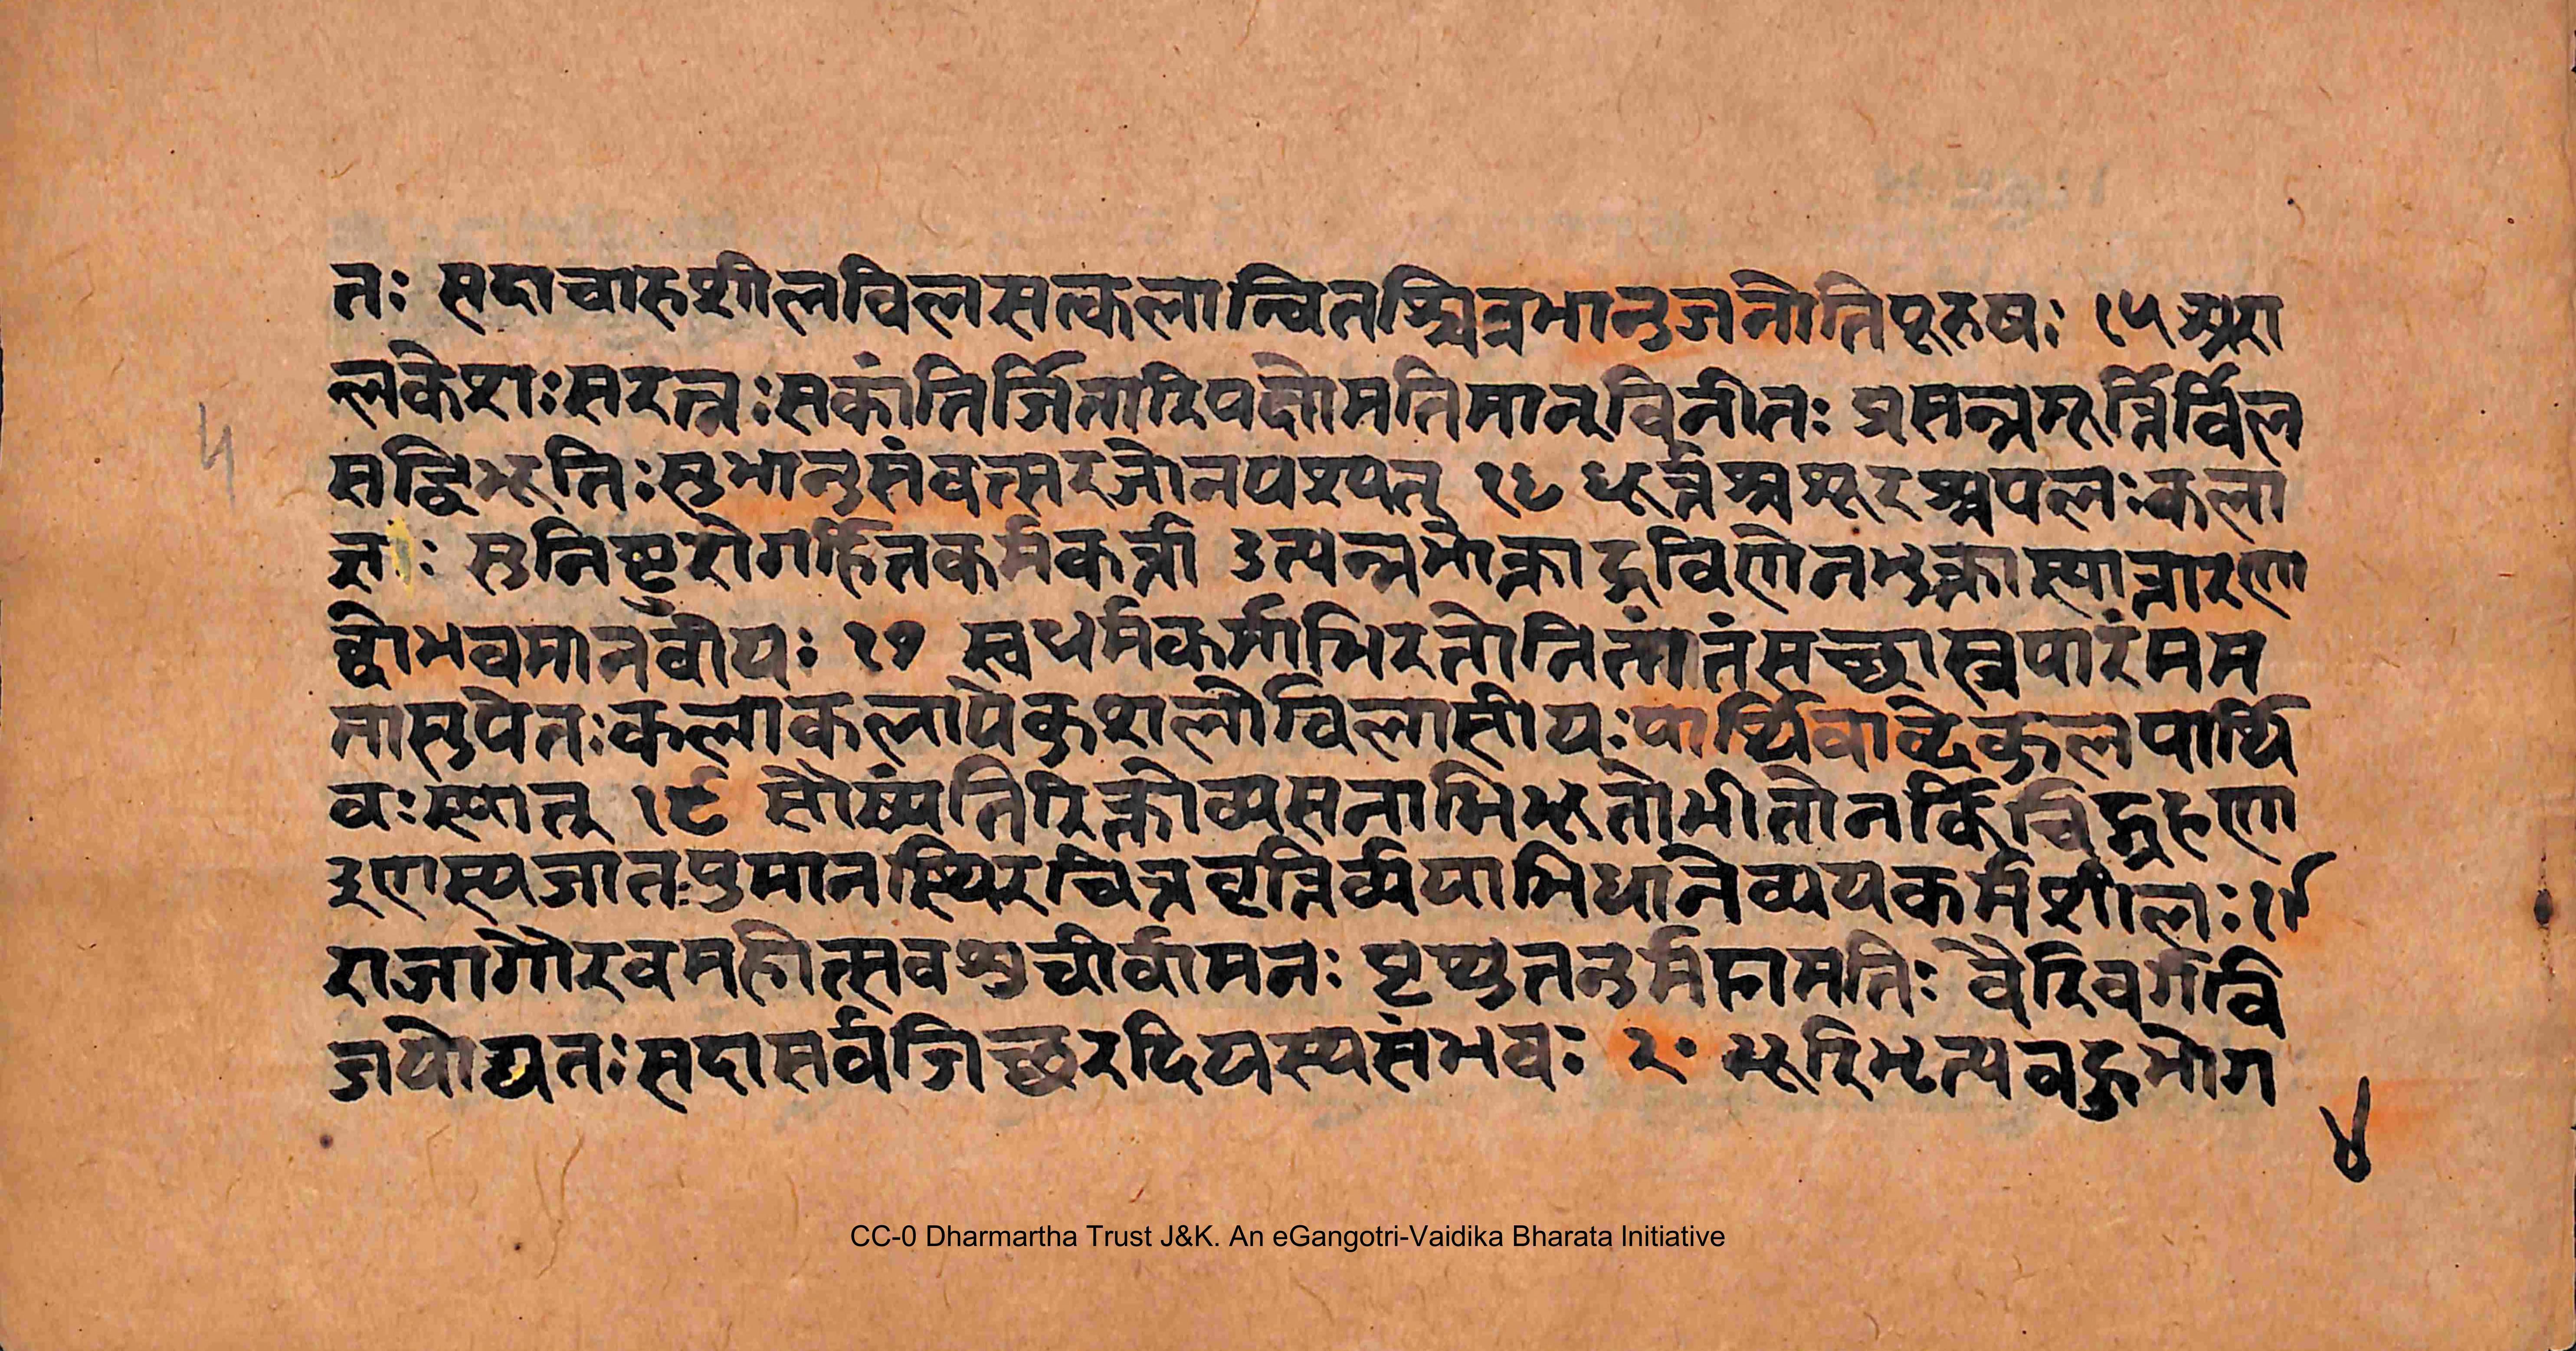 तः सदाचारुशीलविलसत्कलान्वितश्चित्रभानुजनोतिपूरुषः १५ अरा
लकेशः सरत्नः सकांतिर्जितारिपक्षोमतिमान्विनीतः प्रसन्नमूर्त्तिर्विल
सद्विभूतिः सुभानुसंवत्सरजोनपश्यत् १६ धूर्त्तश्चशूरश्चपलः कला
ज्ञः सुनिष्टुरोगर्हितकर्मकर्त्ता उत्पन्नभोक्ताद्रविणोनभुक्तास्यात्तारणा
ब्दोभवमानवीयः १७ स्वधर्मकर्माभिरतोनितांतंसच्छास्त्रपारंमम
तासुपेतः कलाकलापेकुशलोविलासीयः पार्थिवाब्देकुलपार्थि
वः स्यात् १८ सौख्यंतिरिक्तोव्यसनाभिभूतोभीतोनकिंचिद्ग्रहणा
दृणस्यजातः पुमानस्थिरचित्तवृत्तिर्व्ययाभिधानेव्ययकर्मशीलः १९
राजागौरवमहोत्सवशुचीर्वामनः पृथुतनुर्महामतिः वैरिवर्गवि
जयोद्यतः सदासर्वजिच्छरदियस्यसंभवः २० भूरिभृत्यबहुभोग
४
५
CC-0 Dharmartha Trust J&K. An eGangotri-Vaidika Bharata Initiative